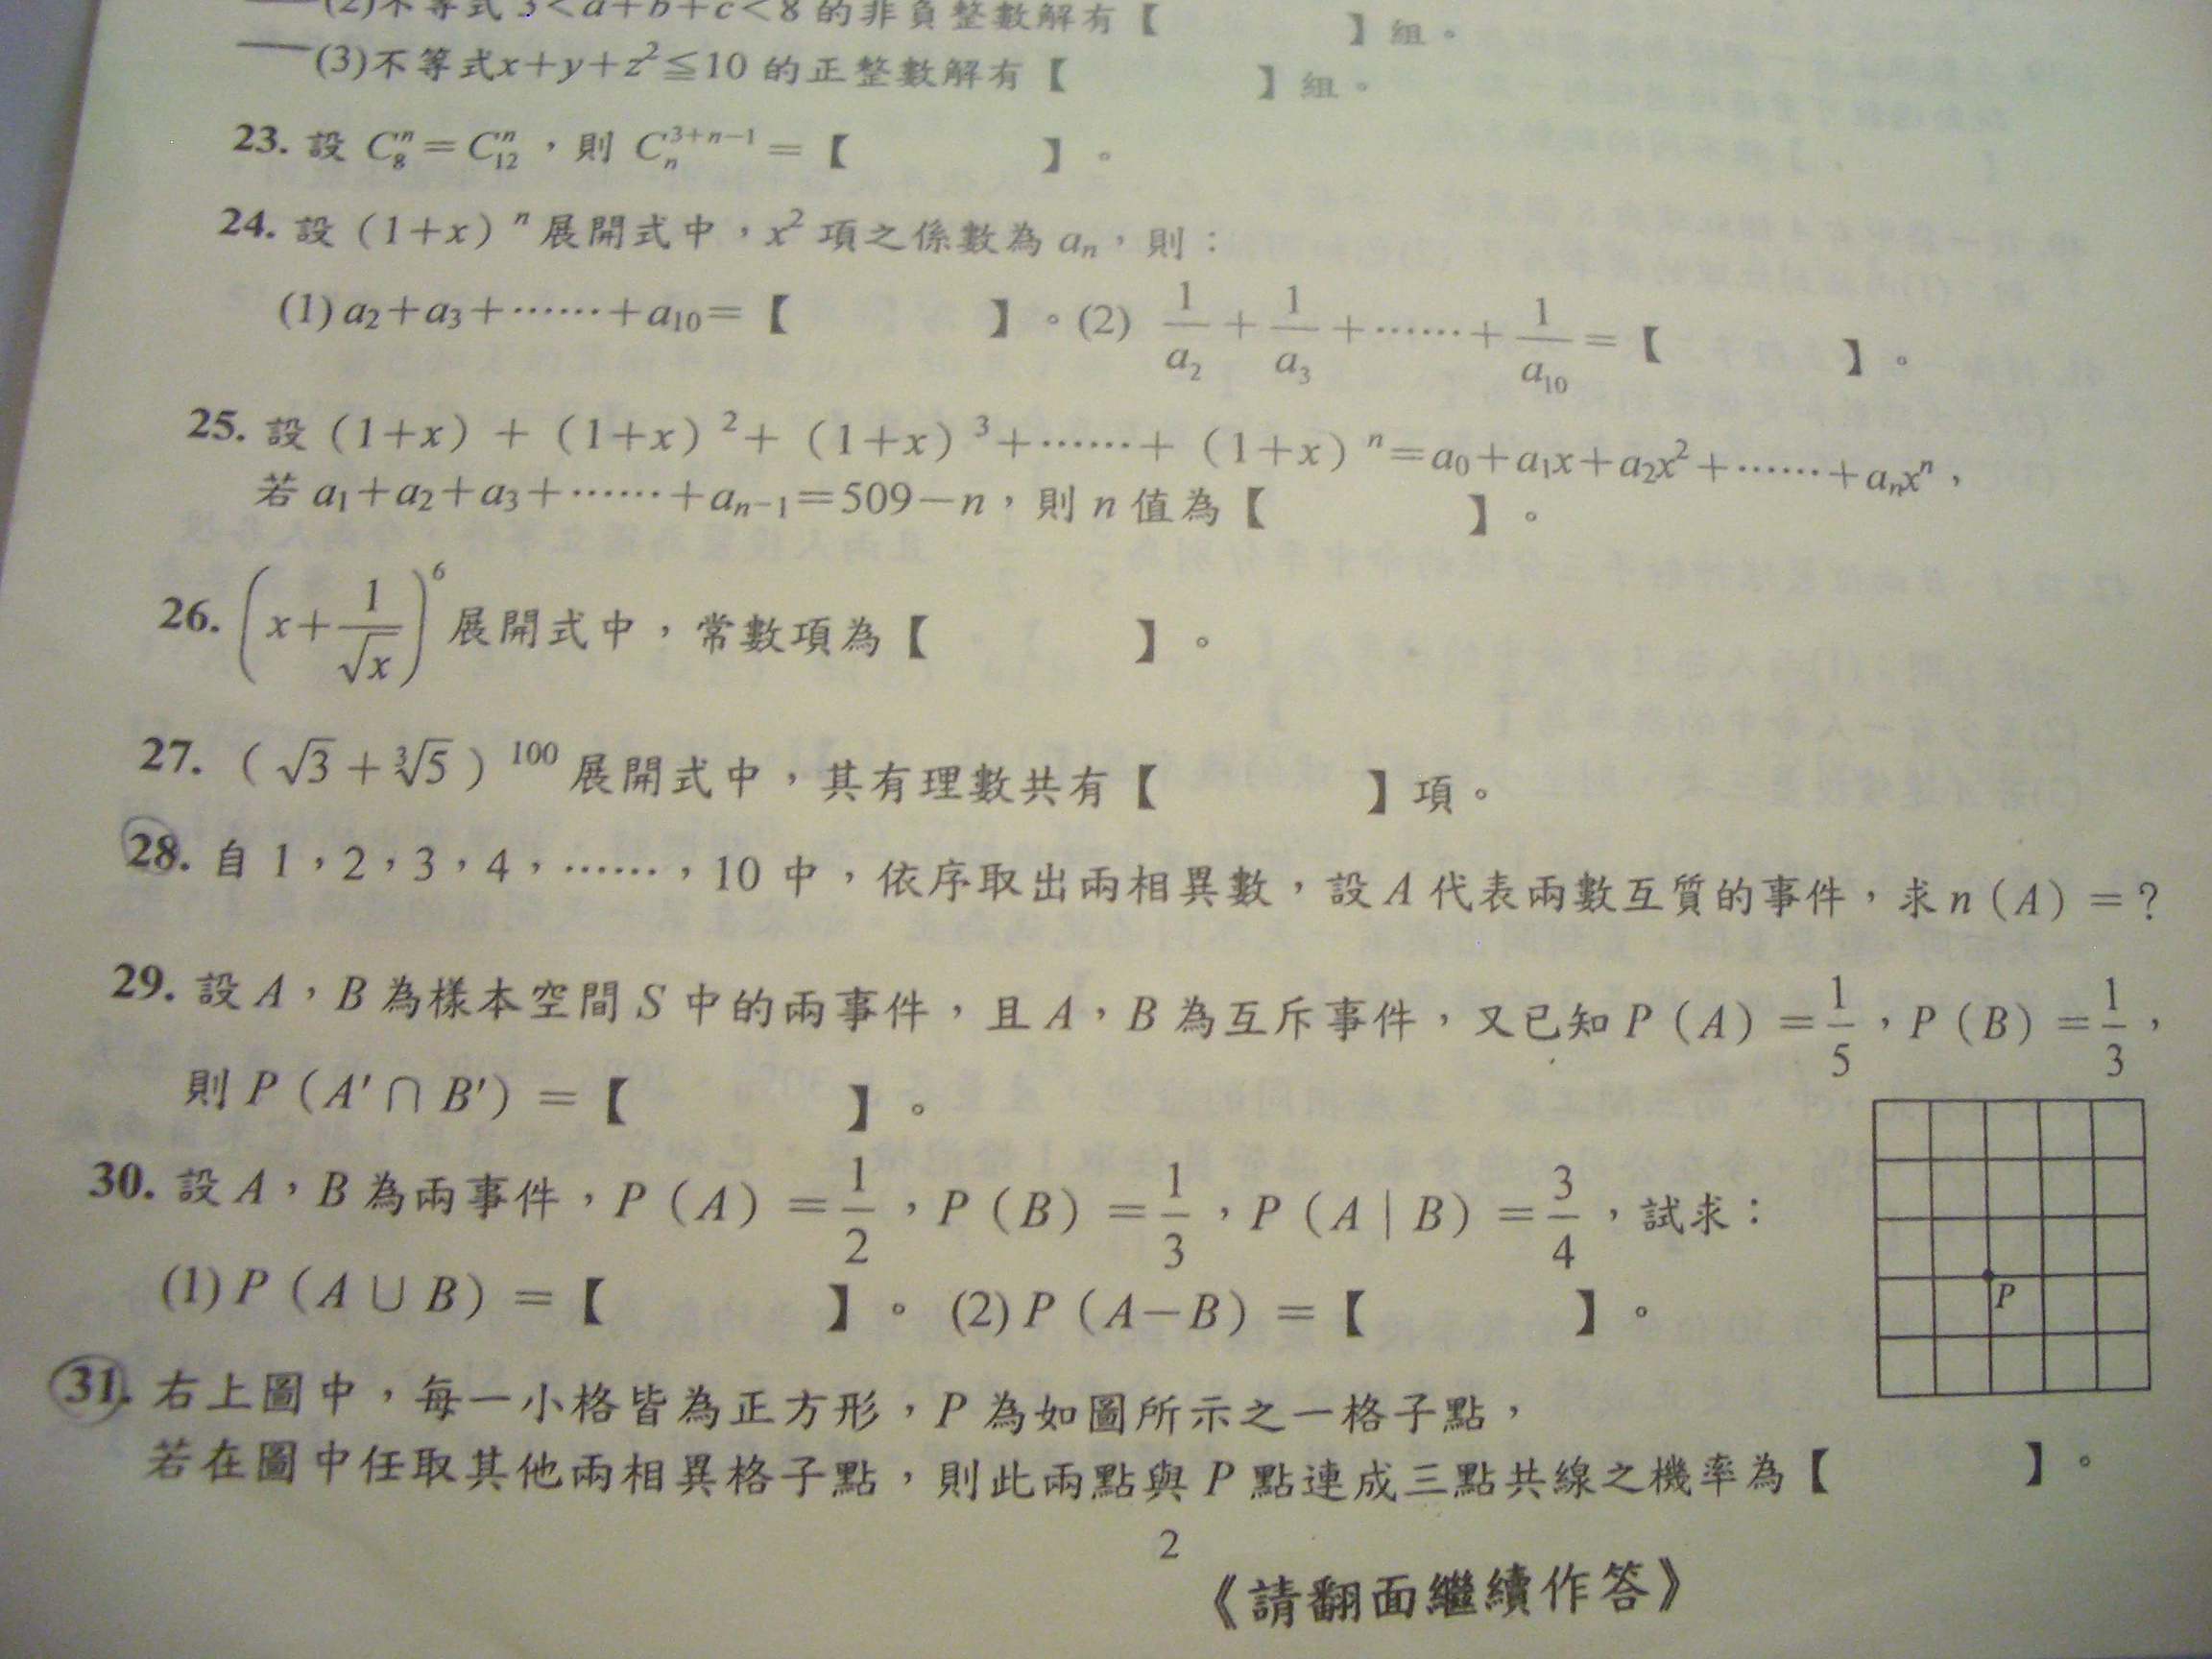 (2)不等式 3<a+b+c<8 的非負整數解有【 】組。
(3)不等式x+y+z²≦10 的正整數解有【 】組。
23. 設 C₈ⁿ=C₁₂ⁿ，則 Cₙ³⁺ⁿ⁻¹=【 】。
24. 設（1+x）ⁿ 展開式中，x² 項之係數為 aₙ，則：
(1) a₂+a₃+……+a₁₀=【 】。(2) 1/a₂+1/a₃+……+1/a₁₀=【 】。
25. 設（1+x）+（1+x）²+（1+x）³+……+（1+x）ⁿ=a₀+a₁x+a₂x²+……+aₙxⁿ，
若 a₁+a₂+a₃+……+aₙ₋₁=509-n，則 n 值為【 】。
26. (x+1/√x)⁶ 展開式中，常數項為【 】。
27.（√3+∛5）¹⁰⁰ 展開式中，其有理數共有【 】項。
28. 自 1，2，3，4，……，10 中，依序取出兩相異數，設 A 代表兩數互質的事件，求 n（A）=？
29. 設 A，B 為樣本空間 S 中的兩事件，且 A，B 為互斥事件，又已知 P（A）=1/5，P（B）=1/3，
則 P（A′∩B′）=【 】。
30. 設 A，B 為兩事件，P（A）=1/2，P（B）=1/3，P（A|B）=3/4，試求：
(1) P（A∪B）=【 】。(2) P（A-B）=【 】。
P
31. 右上圖中，每一小格皆為正方形，P 為如圖所示之一格子點，
若在圖中任取其他兩相異格子點，則此兩點與 P 點連成三點共線之機率為【 】。
2
《請翻面繼續作答》